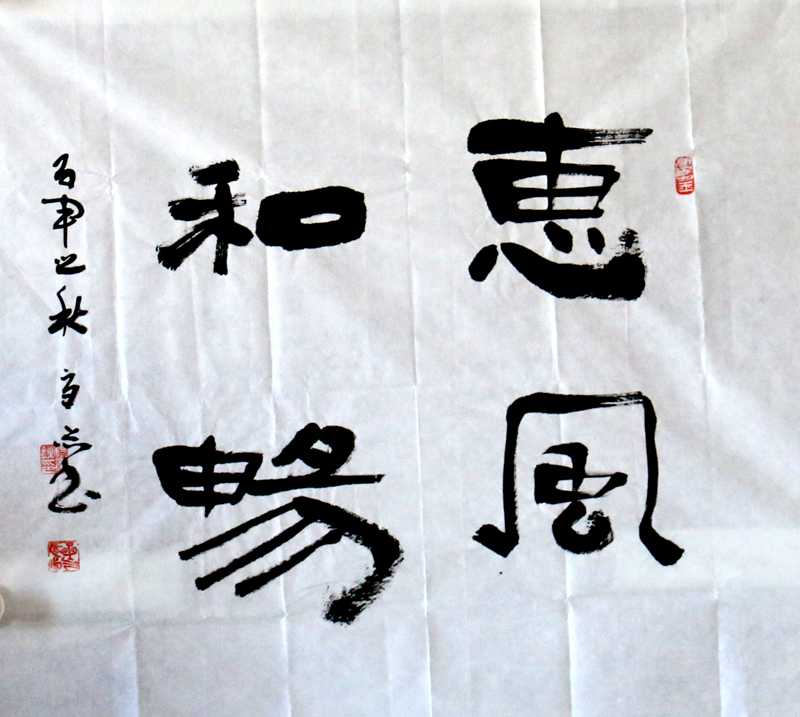 惠風
和暢
丙申之秋